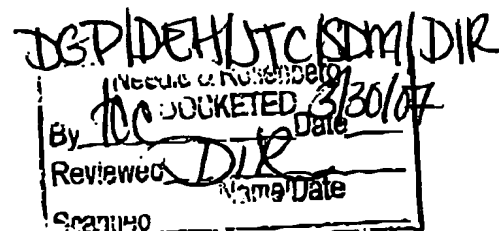 DGP/DEH/JTC/SDM/DIR
Needle & Rosenberg
DOCKETED 3/30/07
By TCC Date
Reviewed DIR
Name/Date
Scanned